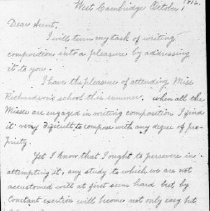 West Cambridge October 1
Dear Aunt,
I will turn my task of writing
composition into a pleasure by addressing
it to you.
I have the pleasure of attending Miss
Richardson's school this summer. when all the
Misses are engaged in writing composition I find
it very difficult to compose with any degree of pro-
priety.
Yet I know that I ought to persevere in
attempting it, any study to which we are not
accustomed will at first seem hard but by
constant exertion will become not only easy but